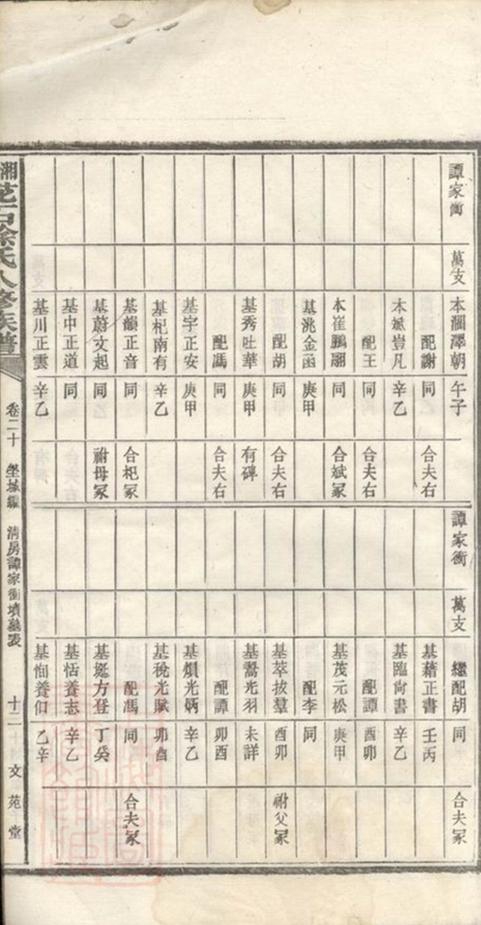 譚家衝
萬支
本涸澤朝 午子
配謝 同 合夫右
本斌豈凡 辛乙
配王 同 合夫右
本崔鵬翮 同 合斌冢
基洮金函 庚甲
配胡 同 合夫右
基秀吐華 庚甲 有碑
配馮 同 合夫右
基宇正安 庚甲
基杞南有 辛乙
基韻正音 同 合杞冢
基蔚文起 同 祔母冢
基中正道 同
基川正雲 辛乙
譚家衝
萬支
繼配胡 同 合夫冢
基藉正書 壬丙
基臨尙書 辛乙
配譚 酉卯
基茂元松 庚甲
配李 同
基萃拔羣 酉卯 祔父冢
基喬光羽 未詳
配譚 卯酉
基熉光炳 辛乙
基稅光賦 卯酉
配馮 同 合夫冢
基挻方登 丁癸
基恬養志 辛乙
基恂養 乙辛
湘 花石徐氏八修族譜
卷二十 塋域編 淸房譚家衝墳墓表 十二 文苑堂